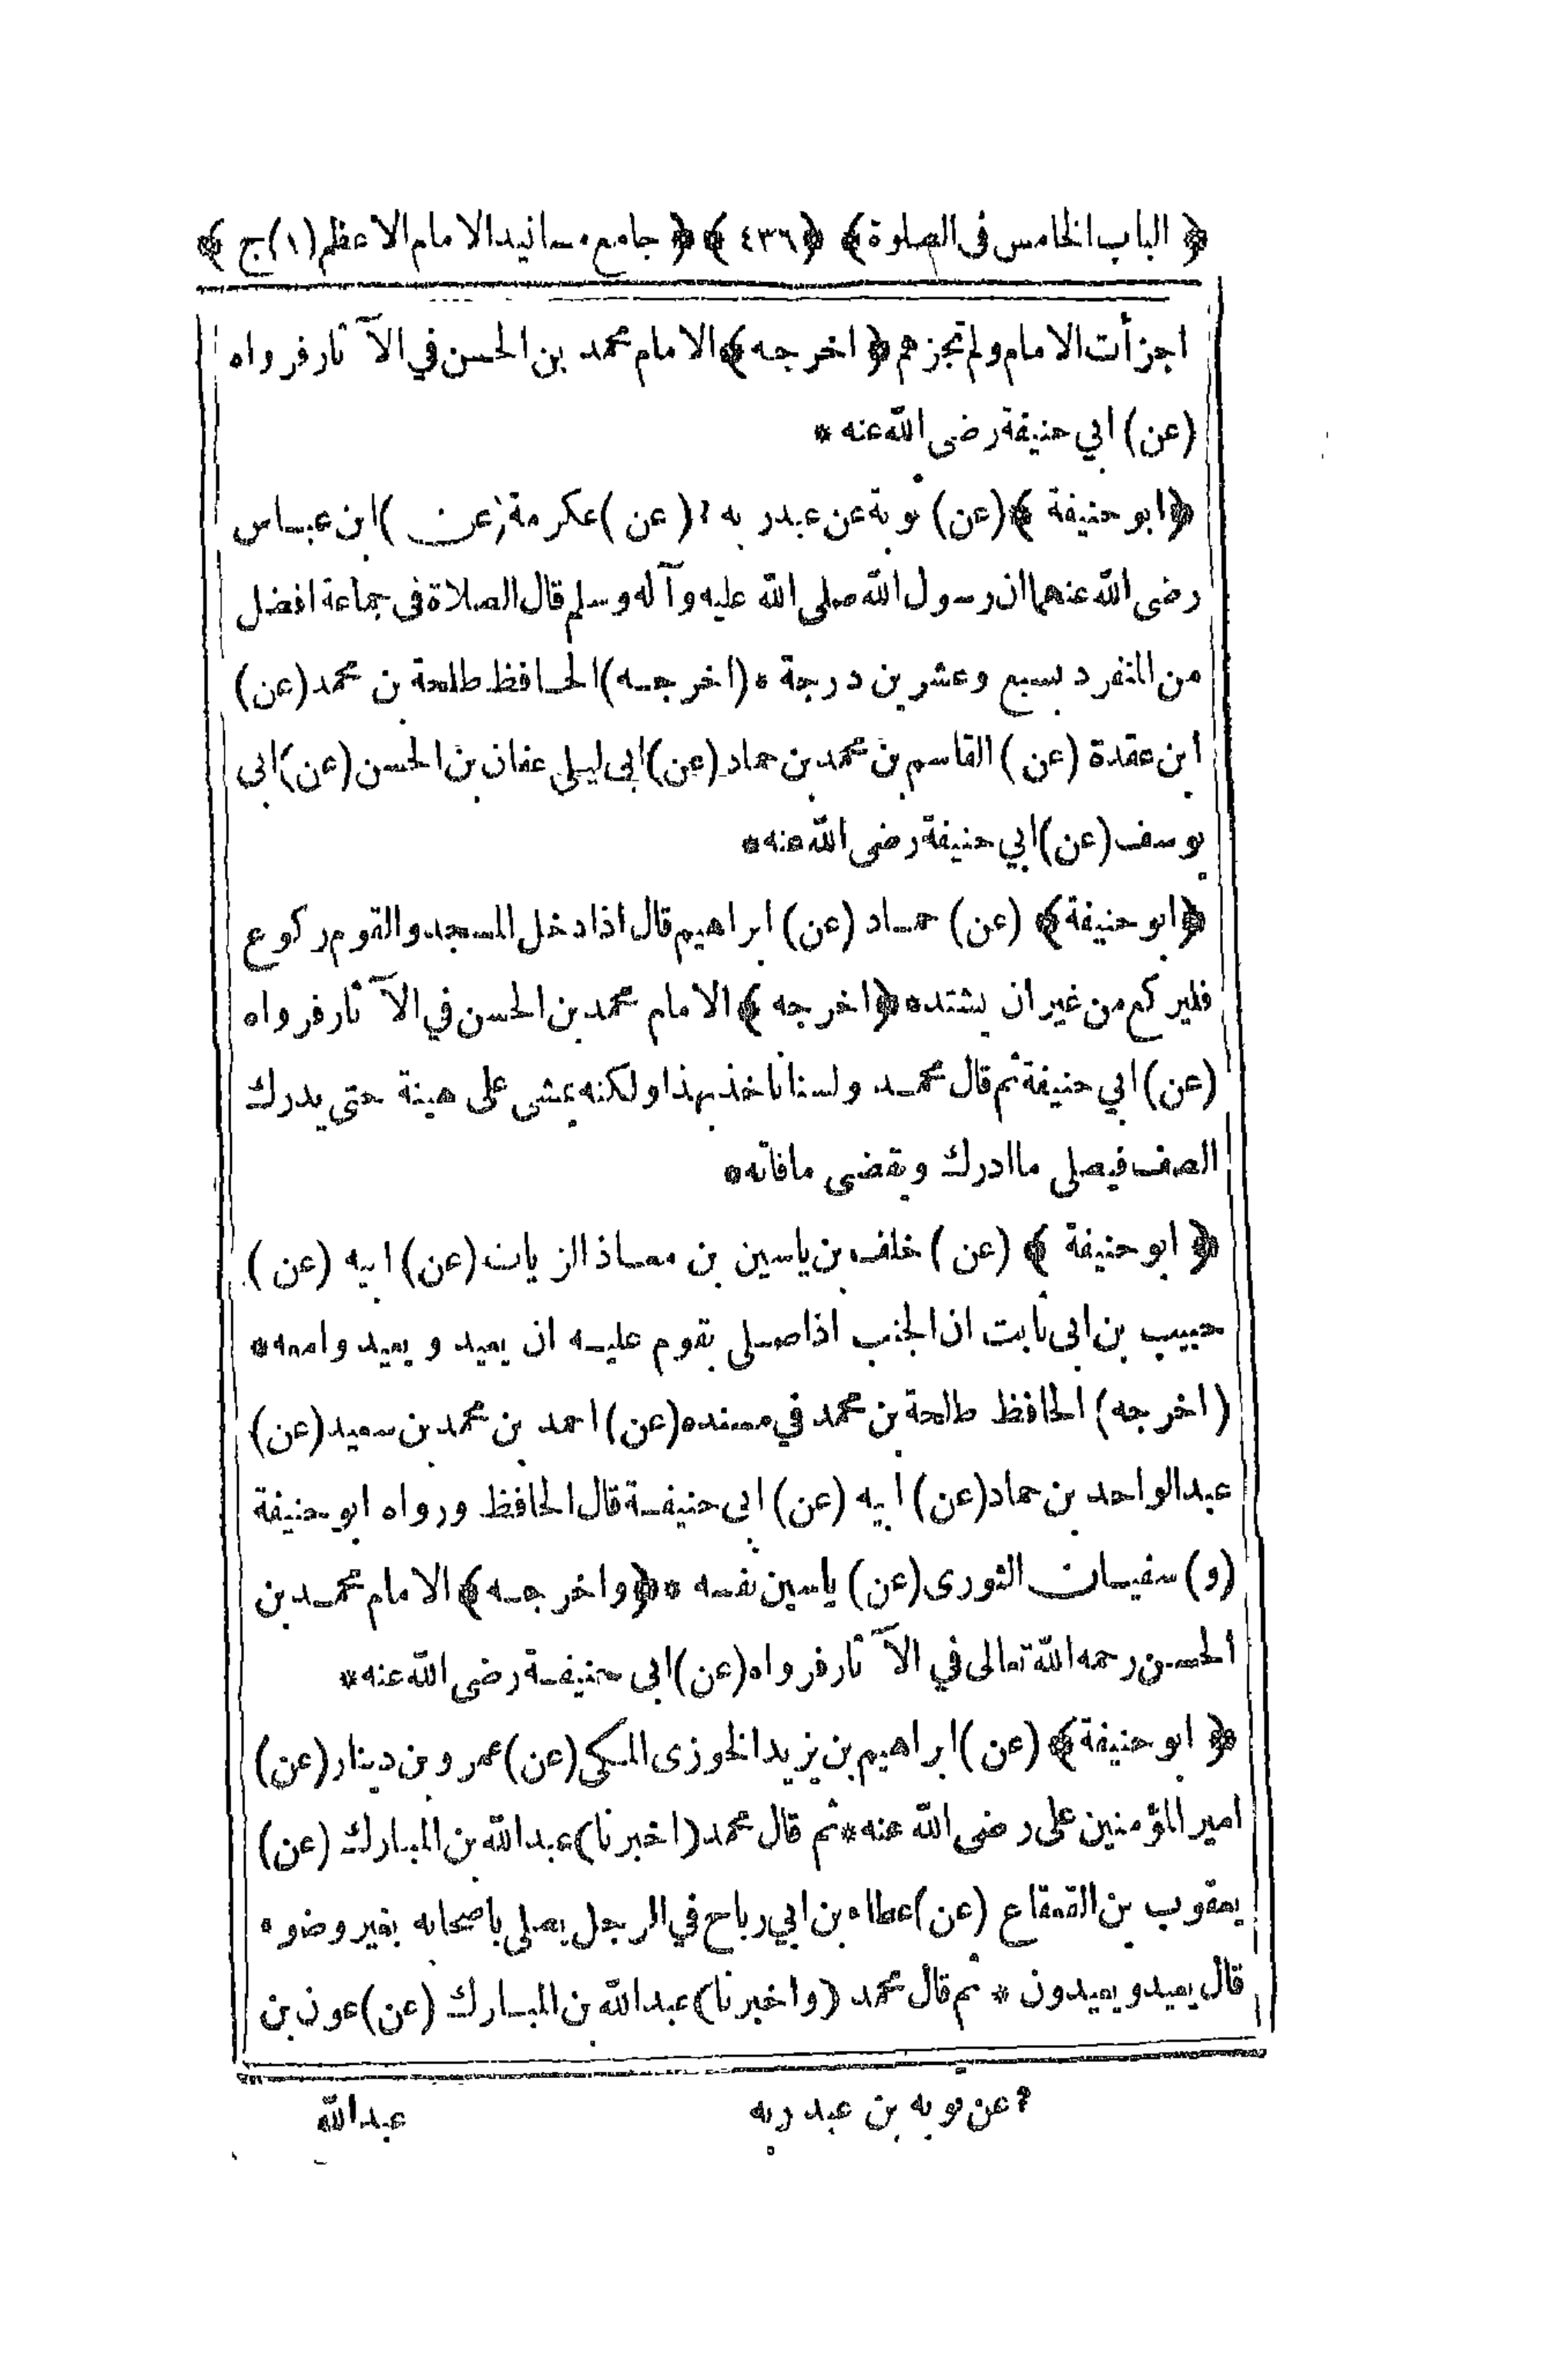 ﴿ الباب الخامس فى الصلوة ﴾ ﴿ ٤٣٦ ﴾ ﴿ جامع مسانيد الامام الاعظم (١) ج ﴾
اجزأت الامام ولم تجزهم ﴿ اخرجه ﴾ الامام محمد بن الحسن في الآثار فرواه
(عن) ابي حنيفة رضى الله عنه *
﴿ ابو حنيفة ﴾ (عن) توبة عن عبدر به ? (عن) عكرمة (عن) ابن عباس
رضى الله عنهما ان رسول الله صلى الله عليه وآله وسلم قال الصلاة فى جماعة افضل
من المنفرد بسبع وعشرين درجة * (اخرجه) الحافظ طلحة بن محمد (عن)
ابن عقدة (عن) القاسم بن محمد بن حماد (عن) ابى ليلى عفان بن الحسن (عن) ابى
يوسف (عن) ابي حنيفة رضى الله عنه *
﴿ ابو حنيفة ﴾ (عن) حماد (عن) ابراهيم قال اذا دخل المسجد والقوم ركوع
فليركع من غير ان يشتد * ﴿ اخرجه ﴾ الامام محمد بن الحسن في الآثار فرواه
(عن) ابي حنيفة ثم قال محمد ولسنا ناخذ بهذا ولكنه يمشى على هينة حتى يدرك
الصف فيصلى ما ادرك ويقضى ما فاته *
﴿ ابو حنيفة ﴾ (عن) خلف بن ياسين بن معاذ الزيات (عن) ابيه (عن)
حبيب بن ابى ثابت ان الجنب اذا صلى بقوم عليه ان يعيد و يعيدوا معه *
(اخرجه) الحافظ طلحة بن محمد في مسنده (عن) احمد بن محمد بن سعيد (عن)
عبد الواحد بن حماد (عن) ابيه (عن) ابى حنيفة قال الحافظ ورواه ابو حنيفة
(و) سفيان الثورى (عن) ياسين نفسه * ﴿ واخرجه ﴾ الامام محمد بن
الحسين رحمه الله تعالى في الآثار فرواه (عن) ابى حنيفة رضى الله عنه *
﴿ ابو حنيفة ﴾ (عن) ابراهيم بن يزيد الخوزى المكى (عن) عمرو بن دينار (عن)
امير المؤمنين على رضى الله عنه * ثم قال محمد (اخبرنا) عبد الله بن المبارك (عن)
يعقوب بن القعقاع (عن) عطاء بن ابي رباح في الرجل يصلى باصحابه بغير وضوء
قال يعيد و يعيدون * ثم قال محمد (واخبرنا) عبد الله بن المبارك (عن) عون بن
? عن توبه بن عبد ربه
عبد الله